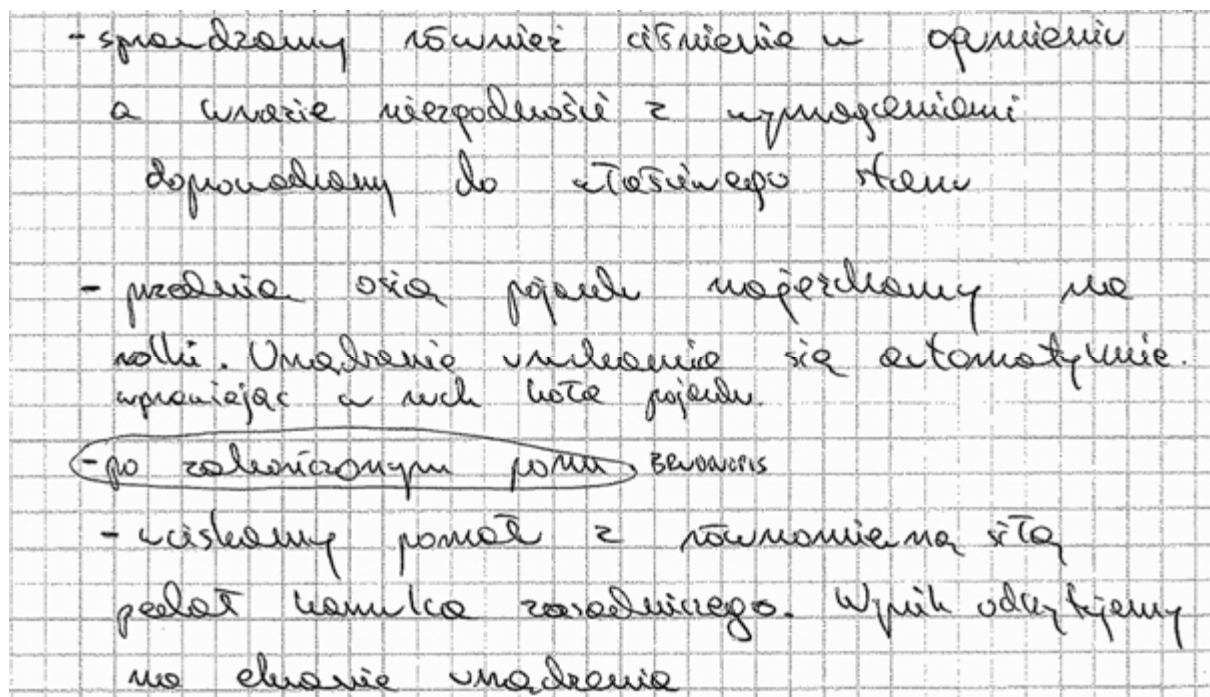 - sprawdzamy również ciśnienie w ogumieniu
a wrazie niezgodności z wymaganiami
doprowadzamy do właściwego stanu
- przednia osią pojazdu najeżdżamy na
rolki. Urządzenie uruchamia się automatycznie.
wprawiając w ruch koła pojazdu.
- po zakończonym pomia BRUDNOPIS
- wciskamy pomału z równomierną siłą
pedał hamulca zasadniczego. Wynik odczytujemy
na ekranie urządzenia